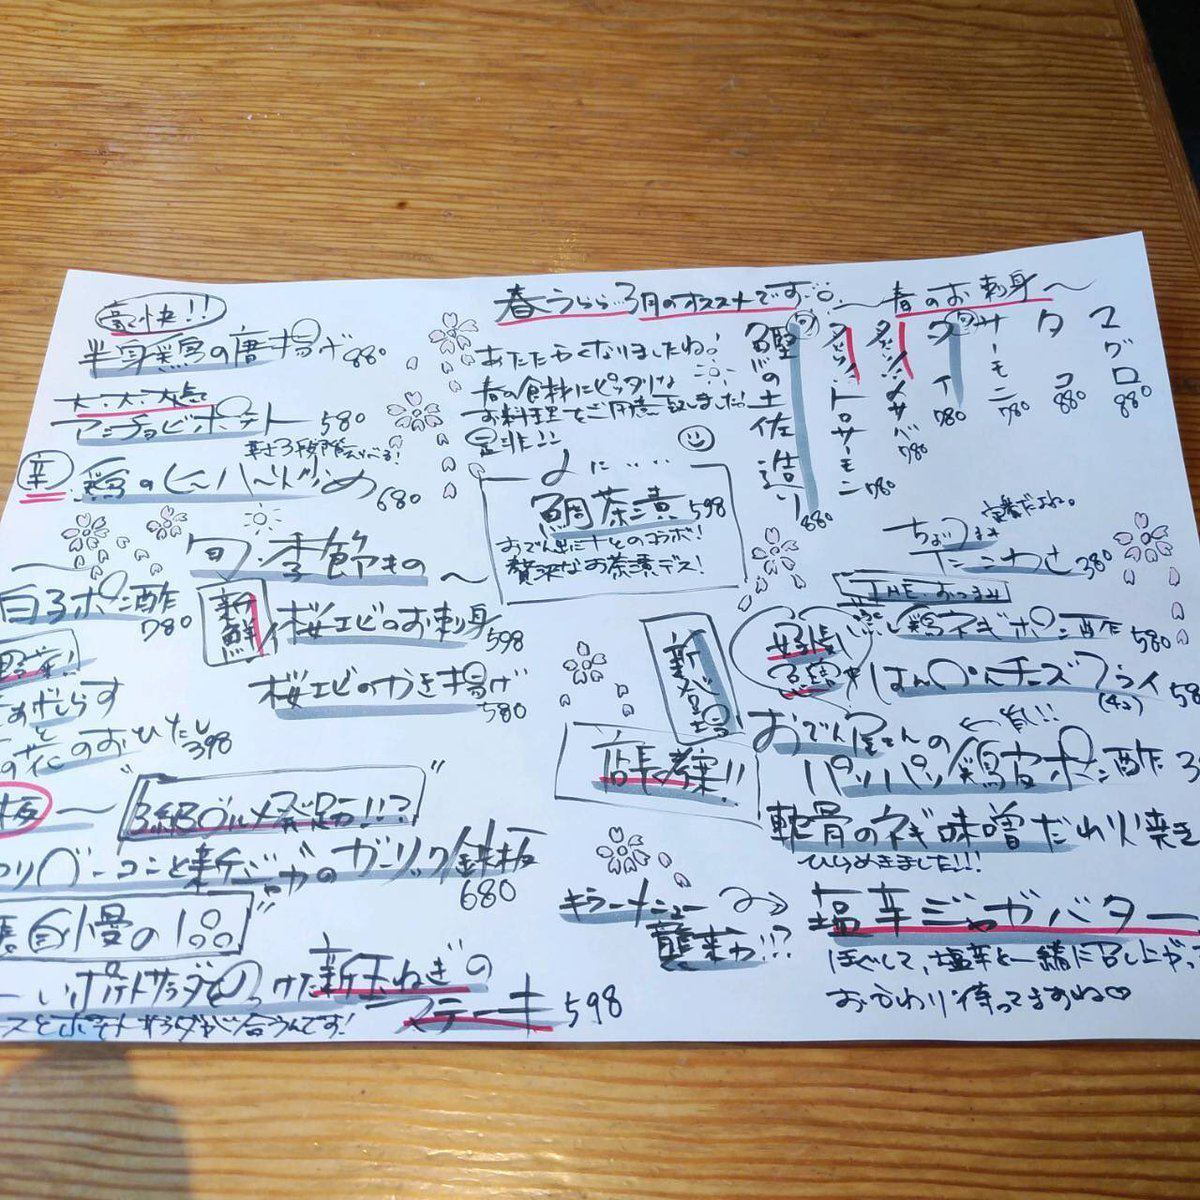 春うらら3月のオススメです
〜春のお刺身〜
マグロ 880
タコ 880
サーモン 780
タイ 780
メサバ 780
トロサーモン 780
鰹の土佐造り 880
あたたかくなりましたね!
春の食材にピッタリな
お料理をご用意致しました!
是非!!
鯛茶漬 598
おでん出汁とのコラボ!
贅沢なお茶漬デス!
豪快!!
半身鶏の唐揚げ 880
大・大・大盛
アンチョビポテト 580
辛さ3段階
辛 鶏のヒーハー 680
旬・季節もの〜
白子ポン酢 780
新鮮 桜エビのお刺身 598
桜エビのかき揚げ 580
しらす
と
花のおひたし 398
板〜
"B級グルメ発足!!?"
ベーコンと新ジャガのガーリック鉄板 680
自慢の1品"
ポテトサラダをのっけた新玉ねぎの
ステーキ 598
ポテトサラダが合うんです!
定番だよね。
ちょいつまみ
たこわさ 380
THE おつまみ
鶏ネギポン酢 580
はんぺんチーズフライ
(4コ)
新登場
おでん屋さんの
パリパリ鶏皮ポン酢
店長考案!!
軟骨のネギ味噌だれ焼き
ひらめきました!!!
キラーメニュー
襲来か!?
塩辛ジャガバター
ほぐして、塩辛と一緒に召し上がって
おかわり待ってますね♡